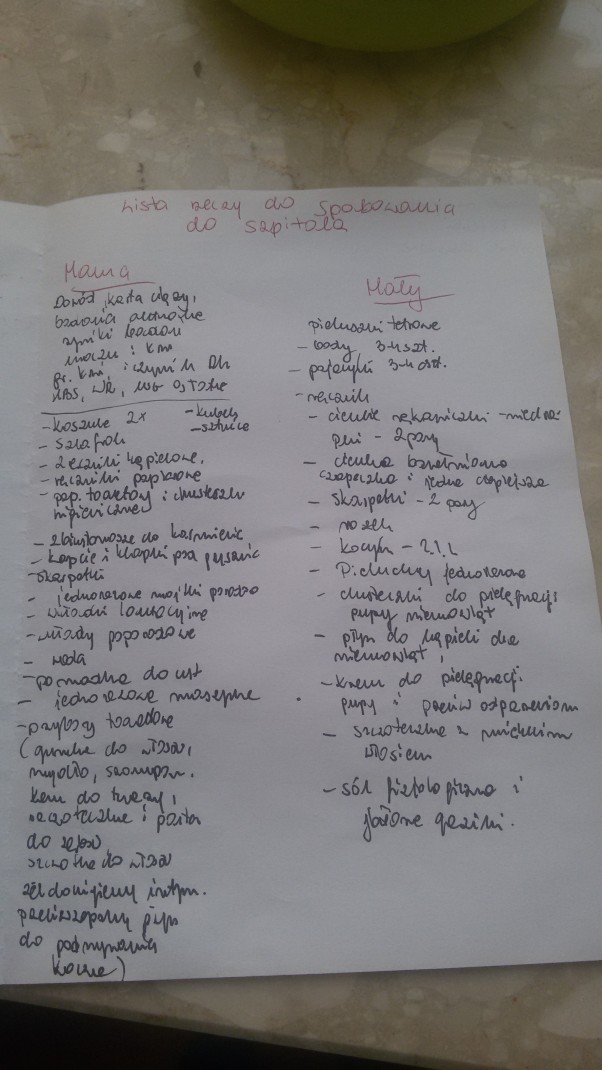 Lista rzeczy do spakowania
do szpitala
Mama
Dowód, karta ciąży,
badania
wyniki
moczu i krwi
gr. krwi, i czynnik Rh
HBS, WR,
- koszule 2x
- kubek
- sztućce
- szlafrok
- 2 ręczniki kąpielowe,
- ręczniki papierowe
- pap. toaletowy i chusteczki
- 2 biustonosze do karmienia
- kapcie i klapki pod prysznic
- skarpetki
- jednorazowe majtki
- wkładki laktacyjne
- wkłady poporodowe
- woda
- pomadka do ust
- jednorazowe maszynki
- przybory toaletowe
(gumka do włosów,
mydło, szampon,
krem do twarzy,
szczoteczka i pasta
do zębów
szczotka do włosów
żel do higieny intym.
płyn
do podmywania
krocza)
Mały
pieluszki tetrowe
- body 3-4 szt.
- pajacyki 3-4 szt.
- ręcznik
- cienkie rękawiczki -
- 2 pary
- cienka bawełniana
czapeczka i jedna cieplejsza
- skarpetki - 2 pary
- rożek
- kocyk -
- Pieluchy jednorazowe
- chusteczki do pielęgnacji
pupy niemowląt
- płyn do kąpieli dla
niemowląt,
- krem do pielęgnacji
pupy i przeciw odparzeniom
- szczoteczka z miękkim
włosiem
- sól fizjologiczna i
jałowe gaziki.